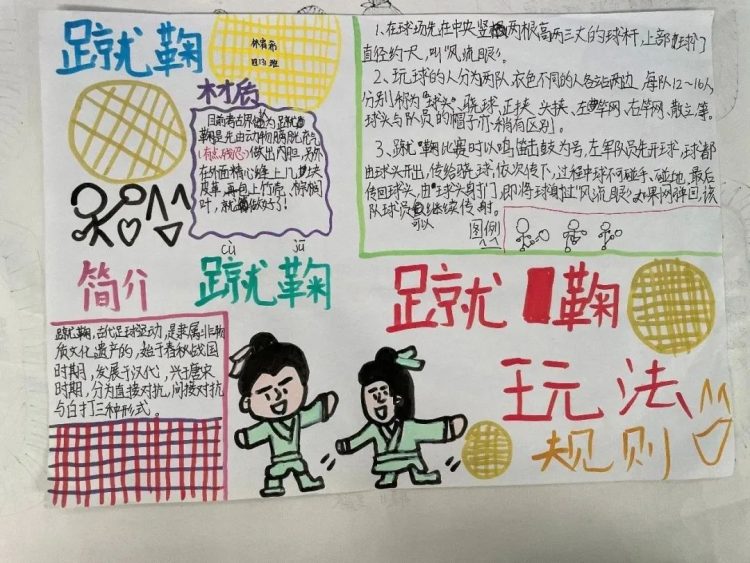 蹴就鞠
材质
目前考古界做为蹴就
鞠是先由动物膀胱充气
(有点残忍)做出内胆,另外
在外面精心缝上几块
皮革,再包上竹壳、棕榈
叶,就做好了!
1、在球场先在中央竖两根高两三丈的球杆,上部球门
直径约尺,叫“风流眼”。
2、玩球的人分为两队,衣色不同的人各站两边,每队12~16人,
分别称为“球头”、骁球、正挟、头挟、左竿网、右竿网、散立等。
球头与队员的帽子亦稍有区别。
3、蹴就鞠比赛时以鸣笛击鼓为号,左军队员先开球,球都
由球头开出,传给骁球,依次传下,过程中球不可碰手、碰地,最后
传回球头,由“球头”射门,即将球射过“风流眼”。如果网弹回,该
队球员可以继续传射。
图例
cù jū
简介
蹴就鞠
蹴就鞠,古代足球运动,是隶属非物
质文化遗产的,始于春秋战国
时期,发展于汉代,兴于唐宋
时期,分为直接对抗,间接对抗
与白打三种形式。
蹴就鞠
玩法
规则